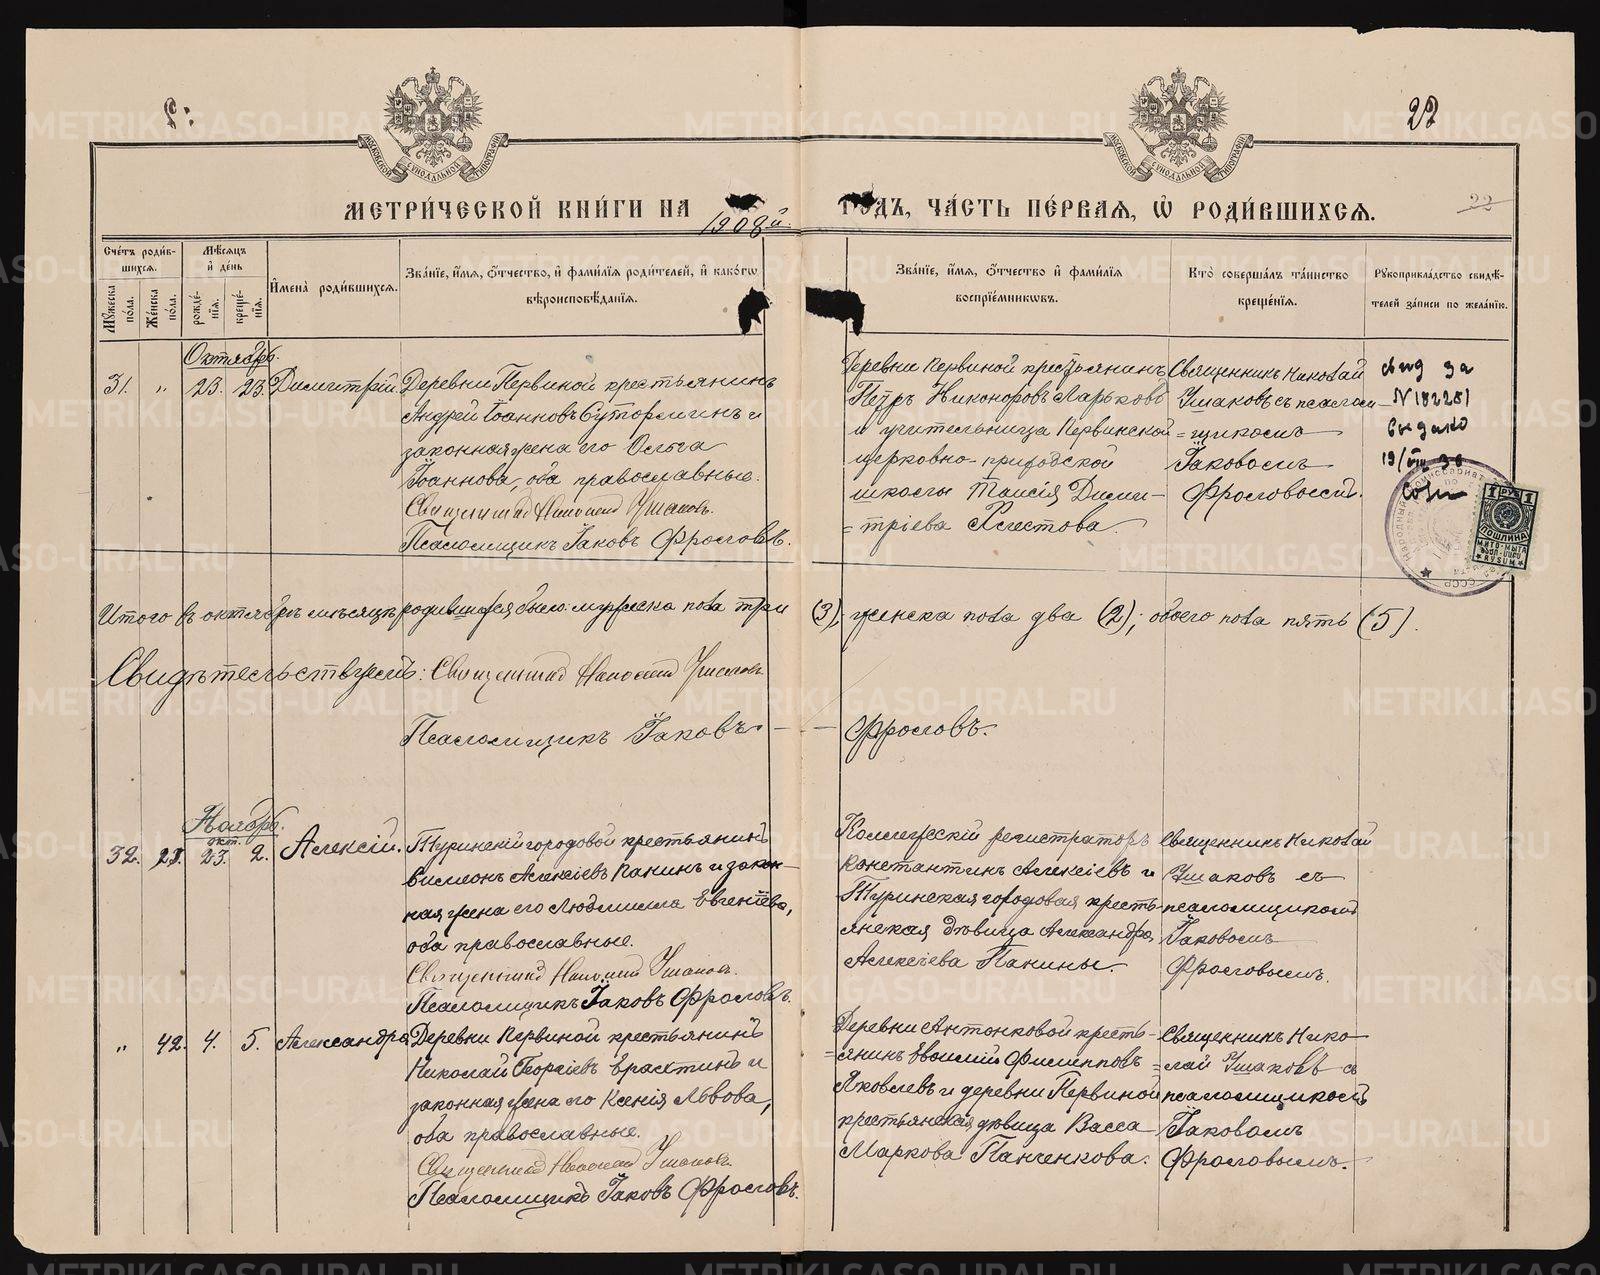 22
МОСКОВСКОЙ СѴНОДАЛЬНОЙ ТИПОГРАФІИ
МОСКОВСКОЙ СѴНОДАЛЬНОЙ ТИПОГРАФІИ
МЕТРИ́ЧЕСКОЙ КНИ́ГИ НА 1908й ГОДЪ, ЧА́СТЬ ПЕ́РВАЯ, Ѡ҆ РОДИ́ВШИХСЯ.
22
Сче́тъ роди́в-
шихся.
Мꙋ́жеска по́ла.
Же́нска по́ла.
Мѣ́сяцъ и҆ де́нь
рожде́-нїя.
креще́-нїя.
И҆мена̀ роди́вшихся.
Зва́нїе, и҆́мя, ѻ҆́тчество, и҆ фами́лїя роди́телей, и҆ како́гѡ
вѣроисповѣ́данїя.
Зва́нїе, и҆́мя, ѻ҆́тчество и҆ фами́лїя
воспрїе́мникѡвъ.
Кто̀ соверша́лъ та́инство
креще́нїя.
Рꙋкоприкла́дство свидѣ́-
телей за́писи по жела́нїю.
Октябрь.
31. „ 23. 23. Димитрій.
Деревни Первиной крестьянинъ
Андрей Іоанновъ Сутормин и
законная жена его Ольга
Іоаннова, оба православные.
Священникъ Николай Ушаковъ.
Псаломщикъ Іаковъ Фроловъ.
Деревни Первиной крестьянинъ
Петръ Никоноровъ Ларьковъ
и учительница Первинской
церковно-приходской
школы Таисія Дими-
=тріева Хлестова.
Священникъ Николай
Ушаковъ съ псалом-
=щикомъ
Іаковомъ
Фроловымъ.
свид за
N 182281
выдано
19/VIII 36
1 РУБ 1
ПОШЛИНА
СССР
Итого въ октябрѣ мѣсяцѣ родившихся было: мужеска пола три (3), женска пола два (2); обоего пола пять (5).
Свидѣтельствуемъ: Священникъ Николай Ушаковъ
Псаломщикъ Іаковъ — — Фроловъ.
Ноябрь.
окт.
32. 23. 2. Алексій.
Туринскій городовой крестьянинъ
Симеонъ Алексіевъ Панинъ и закон-
ная жена его Людмилла Евгеніева,
оба православные.
Священникъ Николай Ушаковъ.
Псаломщикъ Іаковъ Фроловъ.
Коллежскій регистраторъ
Константинъ Алексіевъ и
Туринская городовая кресть-
янская дѣвица Александра
Алексіева Панины.
Священникъ Николай
Ушаковъ съ
псаломщикомъ
Іаковомъ
Фроловымъ.
„ 42. 4. 5. Александра
Деревни Первиной крестьянинъ
Николай Георгіевъ и
законная жена его Ксенія Львова,
оба православные.
Священникъ Николай Ушаковъ.
Псаломщикъ Іаковъ Фроловъ.
Деревни Антонковой кресть-
=янинъ Евфимій Филипповъ
Яковлевъ и деревни Первиной
крестьянская дѣвица Васса
Маркова Панченкова.
Священникъ Нико-
=лай Ушаковъ съ
псаломщикомъ
Іаковомъ
Фроловымъ.
METRIKI.GASO-URAL.RU